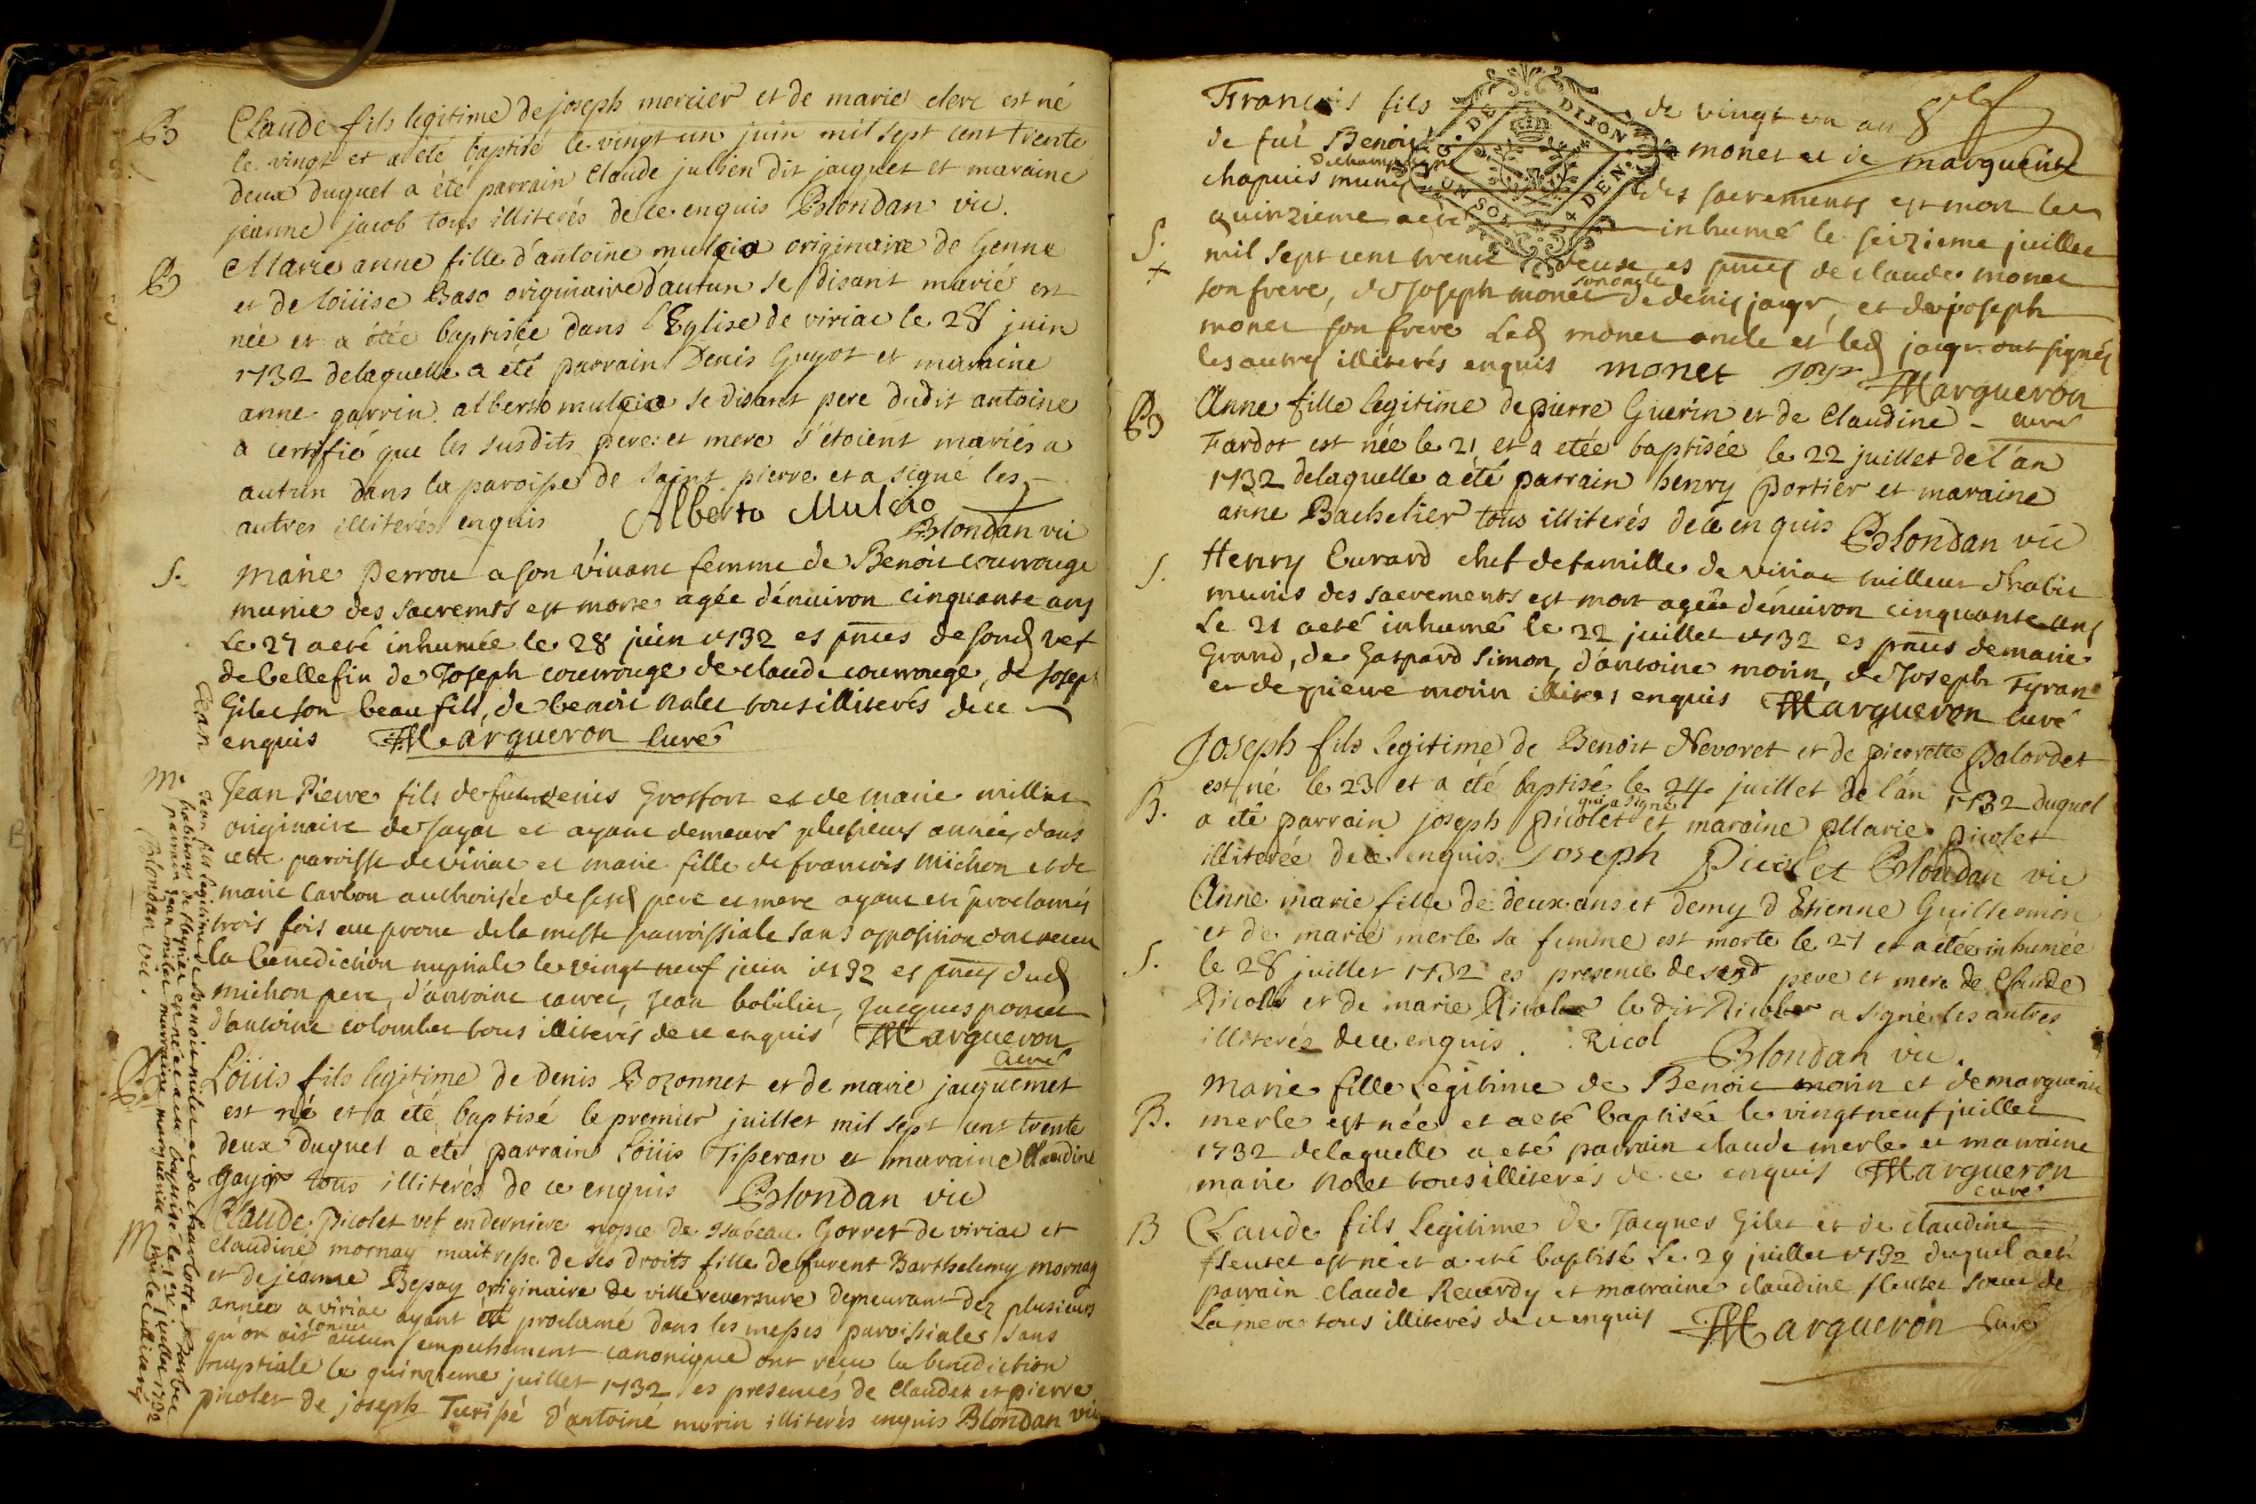 B Claude fils legitime de joseph mercier et de marie clerc est né
le vingt et a été baptisé le vingt un juin mil sept cent trente
deux duquel a été parrain Claude julien dit jacquet et maraine
jeanne jacob tous illiterés de ce enquis Blondan vic.
B Marie anne fille d'antoine mulcio originaire de Genne
et de loüise Baso originaire d'autun se disant mariés est
née et a étée baptisée dans l'Eglise de viriac le 28 juin
1732 delaquelle a été parrain Denis Guyot et maraine
anne garrin alberto mulcio se disant pere dudit antoine
a certifié que les susdits pere et mere s'étoient mariés a
autun dans la paroisse de saint pierre et a signé les
autres illiterés enquis Alberto Mulcio
Blondan vic
S. Marie Perrou a son vivant femme de Benoit courrouge
munie des sacremts est morte agée dénuiron cinquante ans
Le 27 a eté inhumée le 28 juin 1732 es pnces de
de bellefin de Joseph courrouge de claude courrouge, de Joseph
Gilet son beau fils, de benoit nolet tous illiterés de ce
enquis Margueron Curé
M. Jean Pierre fils de denis Grosfort et de marie millet
originaire de et ayant demeuré plusieurs années dans
cette paroisse de viriac et marie fille de francois michon et de
marie Carbon authorisée de sesd pere et mere ayant eté proclamés
trois fois au prone de la messe parroissiale sans opposition ont receu
la benediction nuptiale le vingt neuf juin 1732 es pnces dud
michon pere, d'antoine, jean bobilier, jacques poncet
d'antoine colombet tous illiterés de ce enquis Margueron
Curé
B Loüis fils legitime de Denis Bozonnet et de marie jacquemet
est né et a été baptisé le premier juillet mil sept cent trente
deux duquel a eté parrain loüis Tisseran et maraine Claudine
gayor tous illiterés de ce enquis Blondan vic
M Claude Picolet vef en derniere nopce de isabeau Gorret de viriac et
claudine mornay maitresse de ses droits fille de furent Barthelemy mornay
et de jeanne Bessay originaire de villereversure demeurant dez plusieurs
années a viriac ayant été proclamé dans les messes paroissiales sans
qu'on ait connu aucun empechement canonique ont receu la benediction
nuptiale le quinzieme juillet 1732 es presences de Claude et pierre
picolet de joseph Turissé d'antoine morin illiterés enquis Blondan vic
Jean
Jean fils legitime de Benoit milet et de charlotte Barbet
est né et a eté baptisé le 1 juillet 1732
parrain jean milet marraine marguerite milet illiterés
Blondan vic.
François fils de vingt un an
de fut Benoit monet et de marguerite
chapuis munis des sacrements est mort le
quinzieme a eté inhumé le seizieme juillet
S. mil sept cent trente deux es pnces de claude monet
+ son frere, de Joseph monet son oncle de denis jayr, et de joseph
monet son frere Led monet oncle et led jayr ont signés
les autres illiterés enquis monet Jayr Margueron
curé
B Anne fille legitime de pierre Guerin et de Claudine
Fardot est née le 21 et a etée baptisée le 22 juillet de l'an
1732 delaquelle a été parrain henry portier et maraine
anne Bachelier tous illiterés de ce enquis Blondan vic
S. Henry Eurard chef de famille de viriac tailleur d'habit
munis des sacrements est mort agée dénuiron cinquante ans
Le 21 a eté inhumé le 22 juillet 1732 es pnces de marie
Grand, de Gaspard Simon, d'antoine morin, de Joseph Tyran
et de pierre morin illires enquis Margueron Curé
Joseph fils legitime de Benoit Nevoret et de pierrette palordet
est né le 23 et a été baptisé le 24 juillet de l'an 1732 duquel
B. a été parrain joseph picolet qui a signé et maraine Marie picolet
illiterée de ce enquis Joseph Picolet Blondan vic
Anne marie fille de deux ans et demy d'Etienne Guillemin
et de marie merle sa femme est morte le 27 et a étée inhumée
S. le 28 juillet 1732 es presence de sesd pere et mere de Claude
Ricol et de marie Ricol le dit Ricol a signé les autres
illiterés de ce enquis. Ricol Blondan vic.
Marie fille legitime de Benoit morin et de marguerite
B. merle est née et a eté baptisée le vingt neuf juillet
1732 delaquelle a eté parrain claude merle et marraine
marie nolet tous illiterés de ce enquis Margueron
curé
B Claude fils legitime de Jacques Gilet et de claudine
fleutet est né et a eté baptisé Le 29 juillet 1732 duquel a eté
parrain claude Reverdy et marraine claudine fleutet soeur de
La mere tous illiterés de ce enquis Margueron Curé
G. DE DIJON
UN SOL DEN.